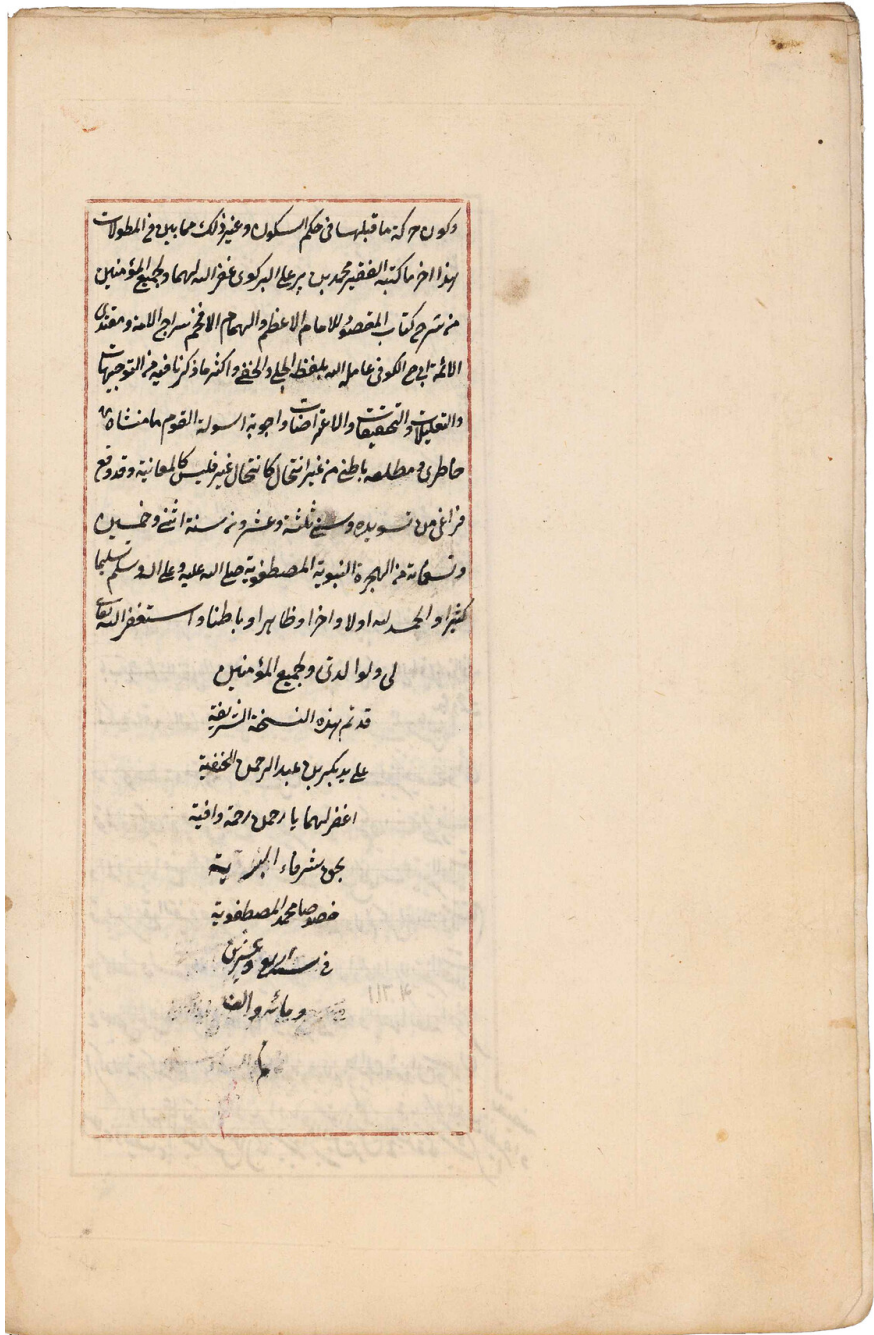 وكون حركة ما قبلها فى حكم السكون وغير ذلك مما بين فى المطولات
هذا اخر ما كتبه الفقير محمد بن پير على البركوى غفر الله لهما ولجميع المؤمنين
من شرح كتاب المقصود للامام الاعظم والهمام الافخم سراج الامة ومقتدى
الائمة ابى ح الكوفى عامله الله بلطفه الجلى والخفى واكثر ما ذكرنا فيه من التوجيهات
والتعليلات والتحقيقات والاعتراضات واجوبة اسولة القوم ما منشاه
خاطرى ومطلعه باطنى من غير انتحال كانتحال غير فليس كالمعانية وقد وقع
فراغى من تسويده وسنى ثلثة وعشرون سنة اثنى وخمسين
وتسعمائة من الهجرة النبوية المصطفوية صلى الله عليه وعلى اله وسلم تسليما
كثيرا والحمد لله اولا واخرا وظاهرا وباطنا واستغفر الله تعالى
لى ولوالدتى ولجميع المؤمنين
قد تم هذه النسخة الشريفة
على يد بكير بن عبد الرحمن الخفية
اغفر لهما يا رحمن رحمة وافية
بحق شرفاء
خصوصا محمد المصطفوية
فى سنة اربع وعشرين
ومائه والف